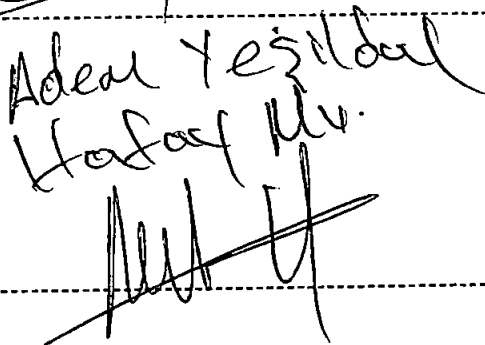 Adem Yeşildal
Hatay Mv.